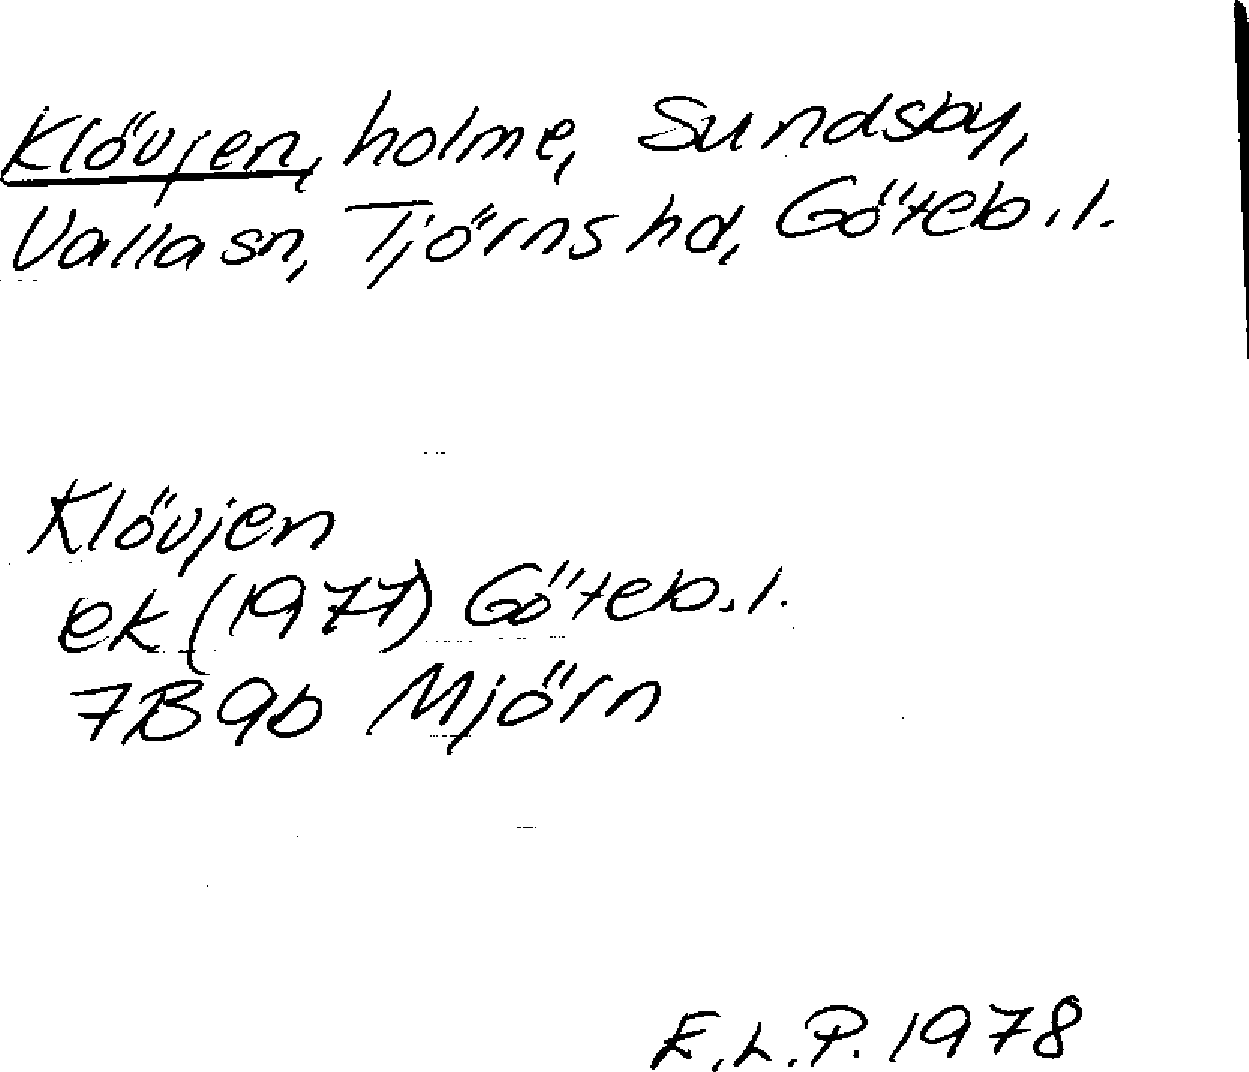 Klövjen, holme, Sundsby,
Valla sn, Tjörns hd, Göteb.l.
Klövjen
ek (1977) Göteb.l.
7B 9b Mjörn
E.L.P. 1978